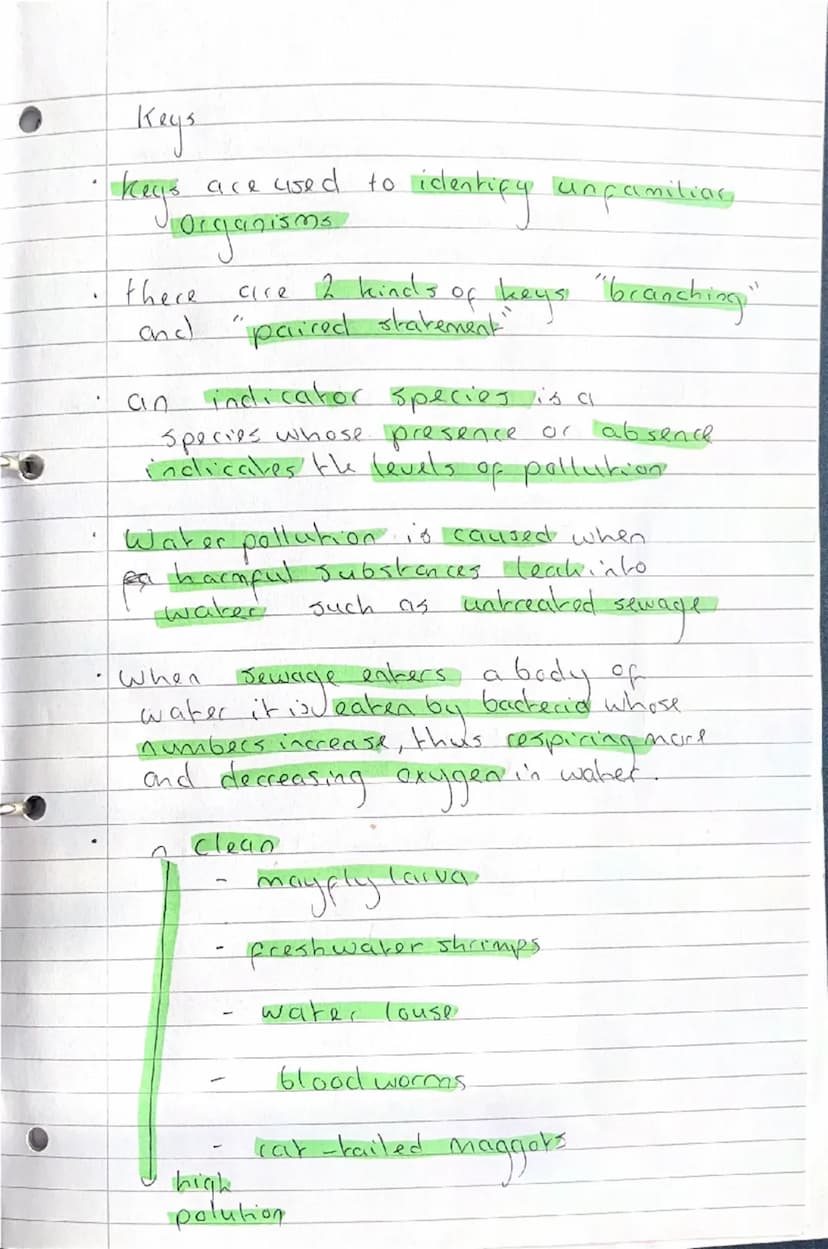 Keys
· keys are used to identify unfamiliar
organisms
· there are 2 kinds of keys "branching"
and "paired statement"
· an indicator species is a
species whose presence or absence
indicates the levels of pollution
· Water pollution is caused when
harmful substances leak into
water such as untreated sewage
· when sewage enters a body of
water it is eaten by bacteria whose
numbers increase, thus respiring more
and decreasing oxygen in water.
· clean
- mayfly larva
- freshwater shrimps
- water louse
- bloodworms
- rat-tailed maggots
high
polution